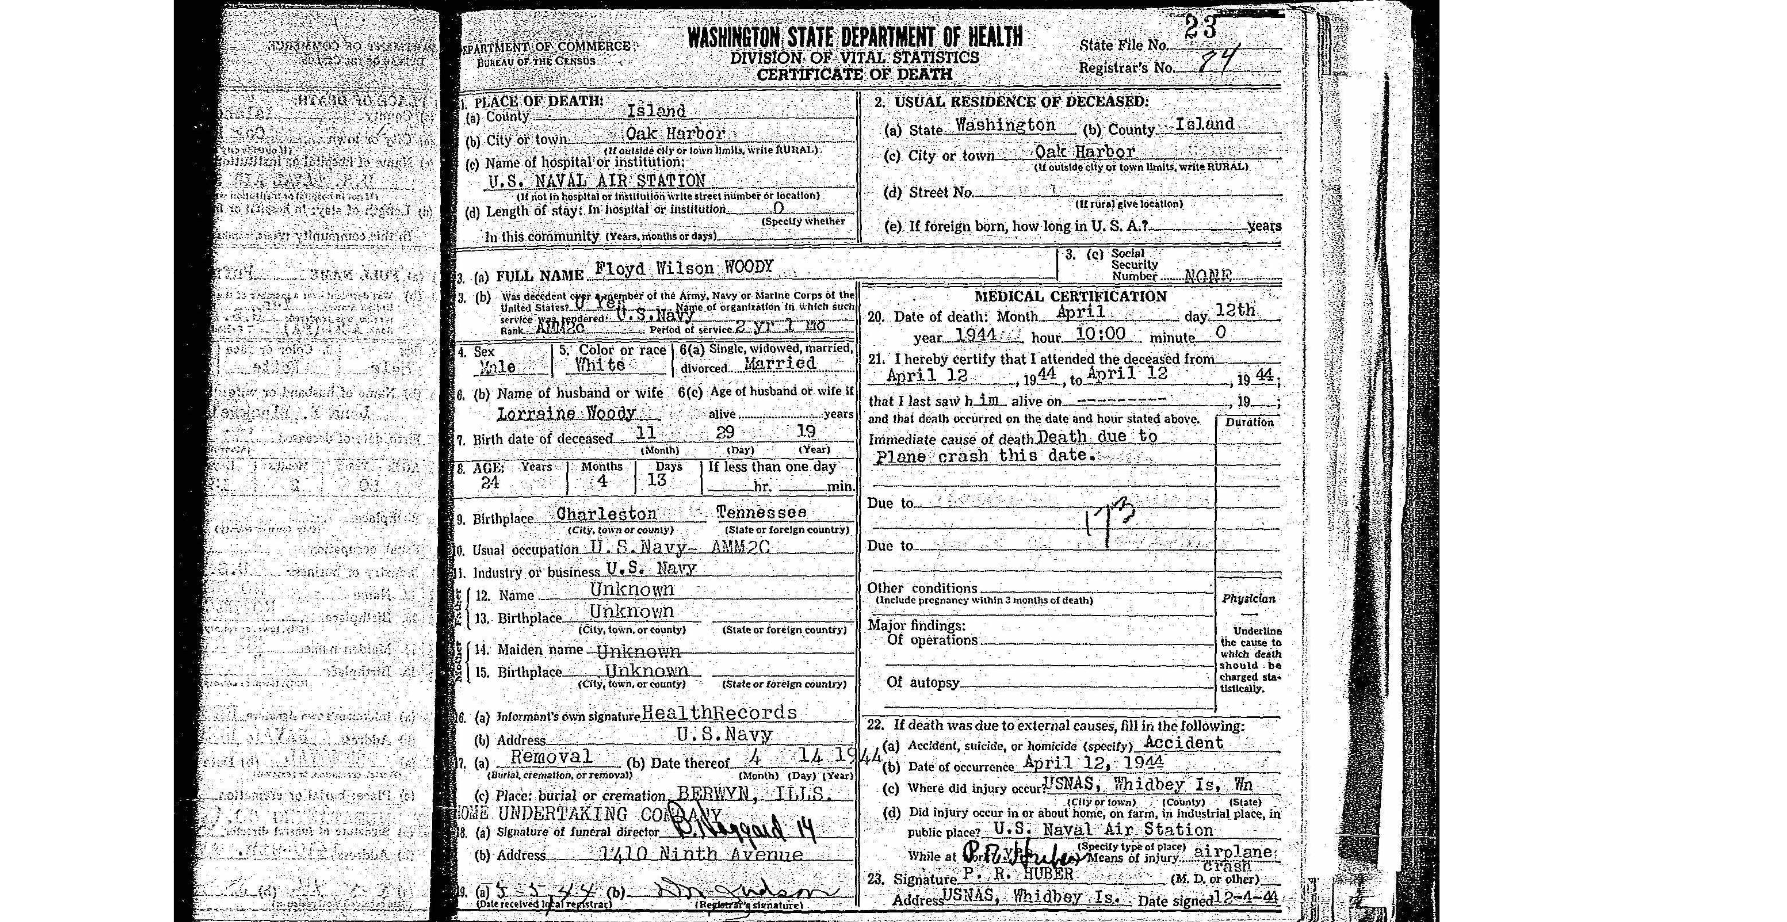 DEPARTMENT OF COMMERCE
BUREAU OF THE CENSUS
WASHINGTON STATE DEPARTMENT OF HEALTH
DIVISION OF VITAL STATISTICS
CERTIFICATE OF DEATH
State File No. 23
Registrar's No. 74
1. PLACE OF DEATH:
(a) County Island
(b) City or town Oak Harbor
(If outside city or town limits, write RURAL)
(c) Name of hospital or institution:
U.S. NAVAL AIR STATION
(If not in hospital or institution write street number or location)
(d) Length of stay: In hospital or institution 0
(Specify whether
In this community (Years, months or days)
2. USUAL RESIDENCE OF DECEASED:
(a) State Washington (b) County Island
(c) City or town Oak Harbor
(If outside city or town limits, write RURAL)
(d) Street No.
(If rural give location)
(e) If foreign born, how long in U. S. A.? years
3. (a) FULL NAME Floyd Wilson WOODY
3. (c) Social
Security
Number NONE
3. (b) Was decedent ever a member of the Army, Navy or Marine Corps of the
United States? Yes Name of organization in which such
service was rendered: U.S.Navy
Rank AMM2c Period of service 2 yr 1 mo
4. Sex Male
5. Color or race White
6(a) Single, widowed, married,
divorced Married
6. (b) Name of husband or wife 6(c) Age of husband or wife if
Lorraine Woody alive years
7. Birth date of deceased 11 29 19
(Month) (Day) (Year)
8. AGE: Years Months Days If less than one day
24 4 13 hr. min.
9. Birthplace Charleston Tennessee
(City, town or county) (State or foreign country)
10. Usual occupation U.S.Navy- AMM2C
11. Industry or business U.S. Navy
12. Name Unknown
13. Birthplace Unknown
(City, town, or county) (State or foreign country)
14. Maiden name Unknown
15. Birthplace Unknown
(City, town, or county) (State or foreign country)
16. (a) Informant's own signature HealthRecords
(b) Address U.S.Navy
17. (a) Removal (b) Date thereof 4 14 1944
(Burial, cremation, or removal) (Month) (Day) (Year)
(c) Place: burial or cremation BERWYN, ILLS.
HOME UNDERTAKING COMPANY
18. (a) Signature of funeral director
(b) Address 1410 Ninth Avenue
19. (a) 5-5-44 (b)
(Date received local registrar) (Registrar's signature)
MEDICAL CERTIFICATION
20. Date of death: Month April day 12th
year 1944 hour 10:00 minute 0
21. I hereby certify that I attended the deceased from
April 12, 1944, to April 12, 1944;
that I last saw him alive on ---------, 19 ;
and that death occurred on the date and hour stated above.
Duration
Immediate cause of death Death due to
Plane crash this date.
Due to
173
Due to
Other conditions
(Include pregnancy within 3 months of death)
Physician
Major findings:
Of operations
Of autopsy
Underline
the cause to
which death
should be
charged sta-
tistically.
22. If death was due to external causes, fill in the following:
(a) Accident, suicide, or homicide (specify) Accident
(b) Date of occurrence April 12, 1944
(c) Where did injury occur? USNAS, Whidbey Is, Wn
(City or town) (County) (State)
(d) Did injury occur in or about home, on farm, in industrial place, in
public place? U.S. Naval Air Station
(Specify type of place)
While at work? Means of injury airplane
crash
23. Signature P. R. HUBER (M. D. or other)
Address USNAS, Whidbey Is. Date signed 12-4-44